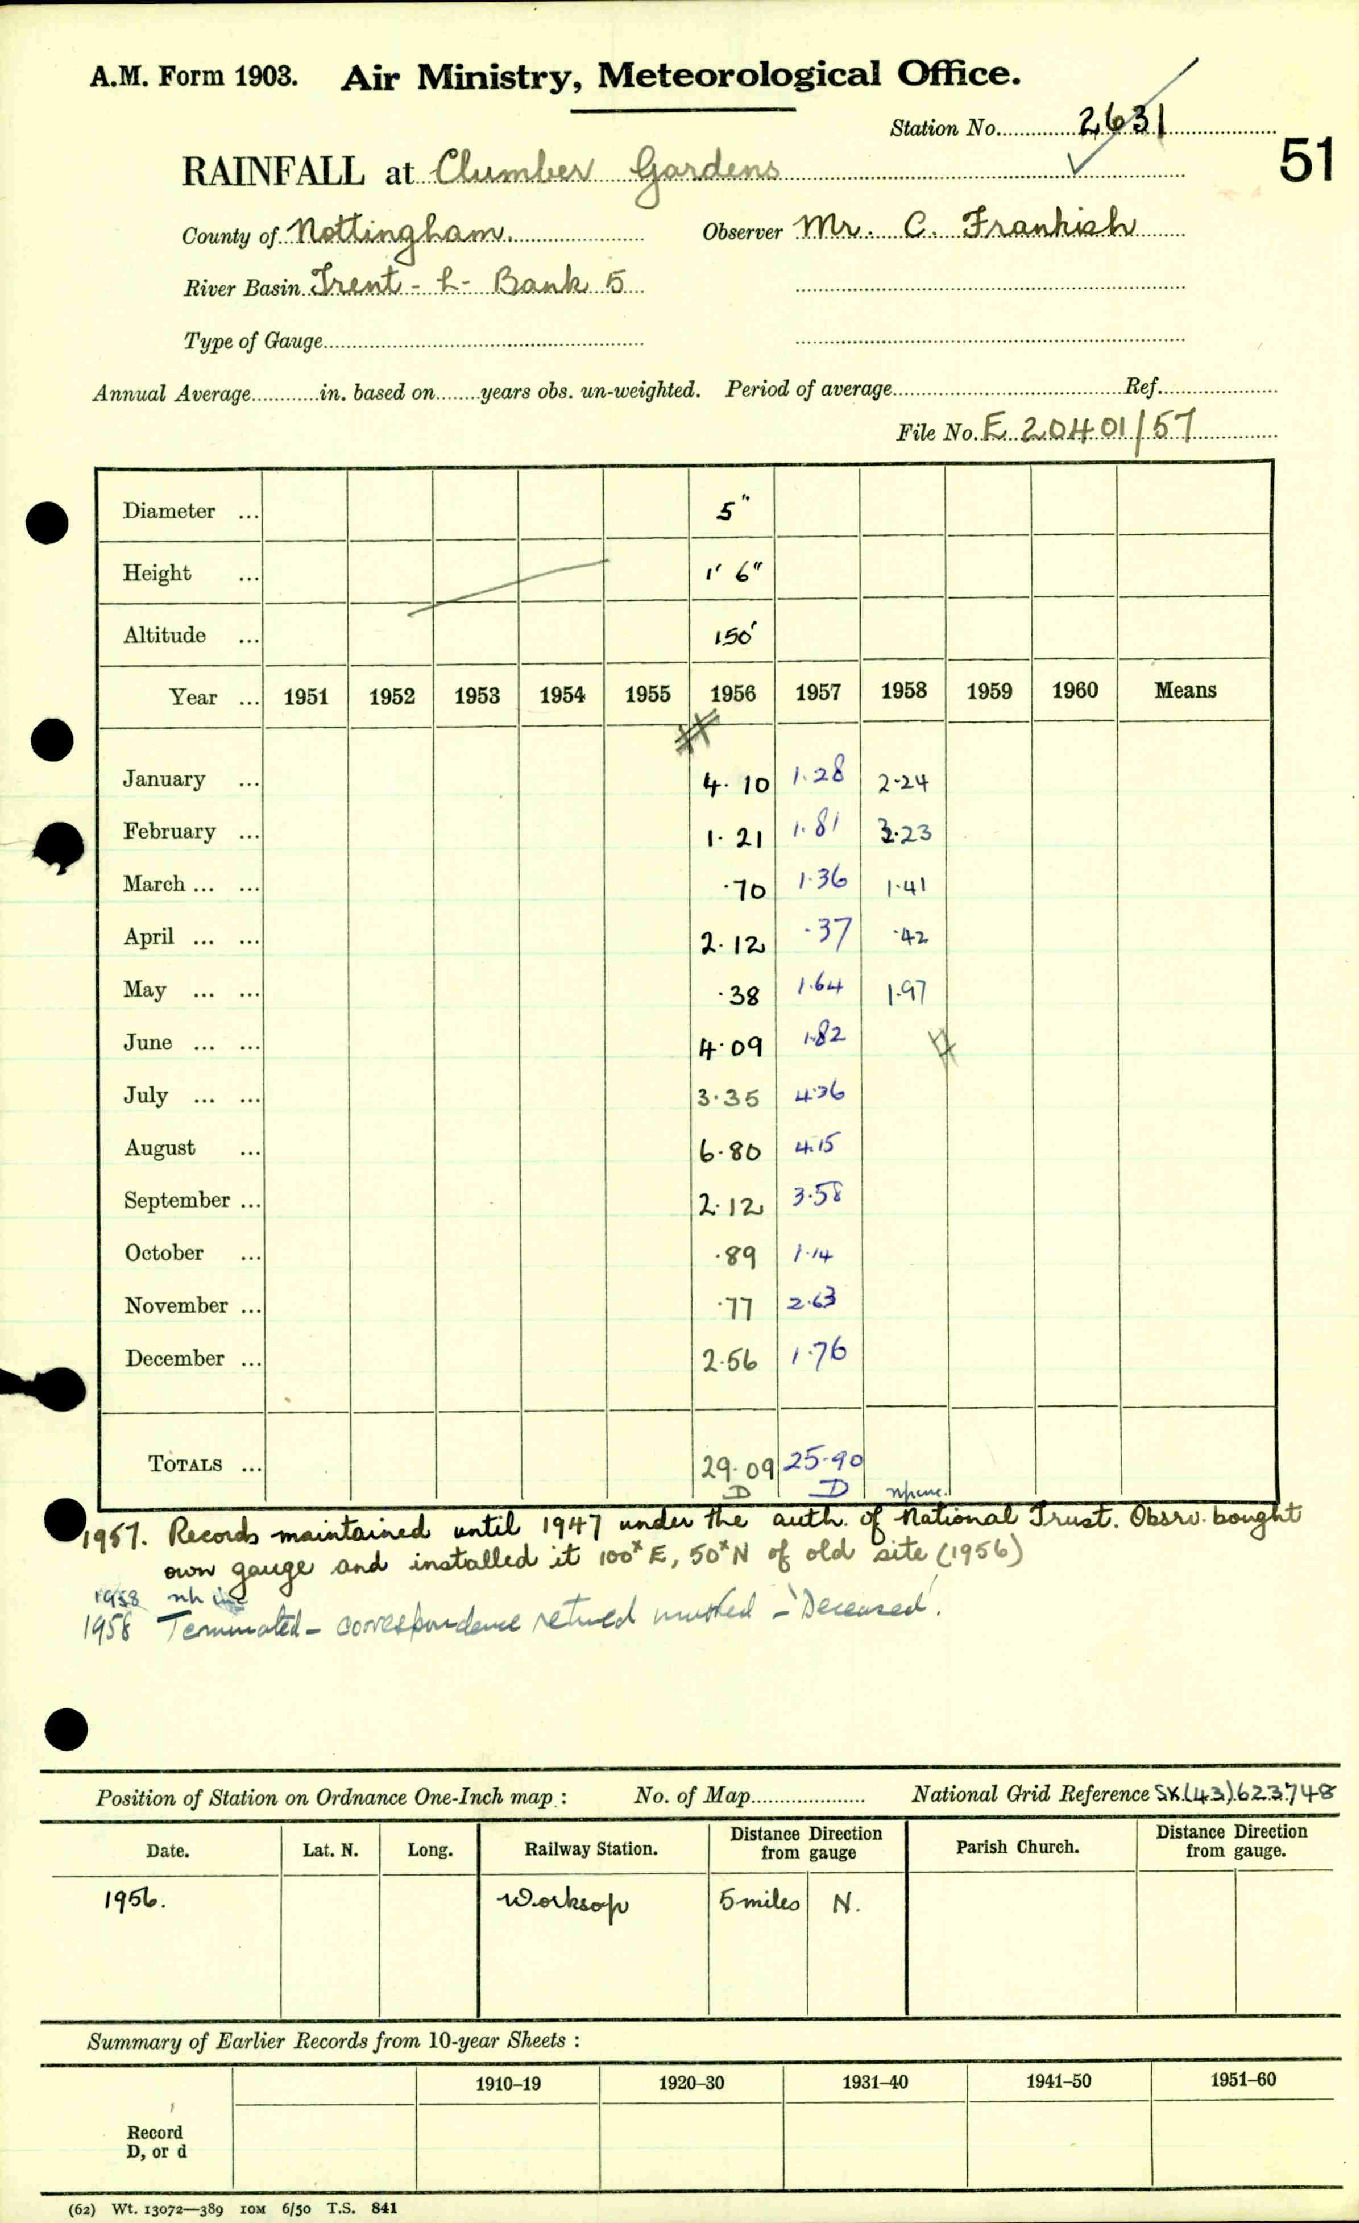 A.M. Form 1903. Air Ministry, Meteorological Office.
Station No. 2631
51
RAINFALL at Clumber Gardens
County of Nottingham. Observer Mr. C. Frankish
River Basin Trent - L - Bank 5
Type of Gauge
Annual Average in. based on years obs. un-weighted. Period of average Ref.
File No. E 20401/57
Diameter ... 5"
Height ... 1' 6"
Altitude ... 150'
Year ... 1951 1952 1953 1954 1955 1956 1957 1958 1959 1960 Means
January ... 4.10 1.28 2.24
February ... 1.21 1.81 3.23
March ... ... .70 1.36 1.41
April ... ... 2.12 .37 .42
May ... ... .38 1.64 1.97
June ... ... 4.09 1.82
July ... ... 3.35 4.36
August ... 6.80 4.15
September ... 2.12 3.58
October ... .89 1.14
November ... .77 2.63
December ... 2.56 1.76
TOTALS ... 29.09 25.90
D D
1957. Records maintained until 1947 under the auth. of National Trust. Obsrv. bought
own gauge and installed it 100x E, 50x N of old site (1956)
1958
1958 Terminated - correspondence retned marked - 'Deceased'.
Position of Station on Ordnance One-Inch map : No. of Map National Grid Reference SK(43)623748
Date. Lat. N. Long. Railway Station. Distance Direction from gauge Parish Church. Distance Direction from gauge.
1956. Worksop 5 miles N.
Summary of Earlier Records from 10-year Sheets :
1910–19 1920–30 1931–40 1941–50 1951–60
Record
D, or d
(62) Wt. 13072—389 10M 6/50 T.S. 841